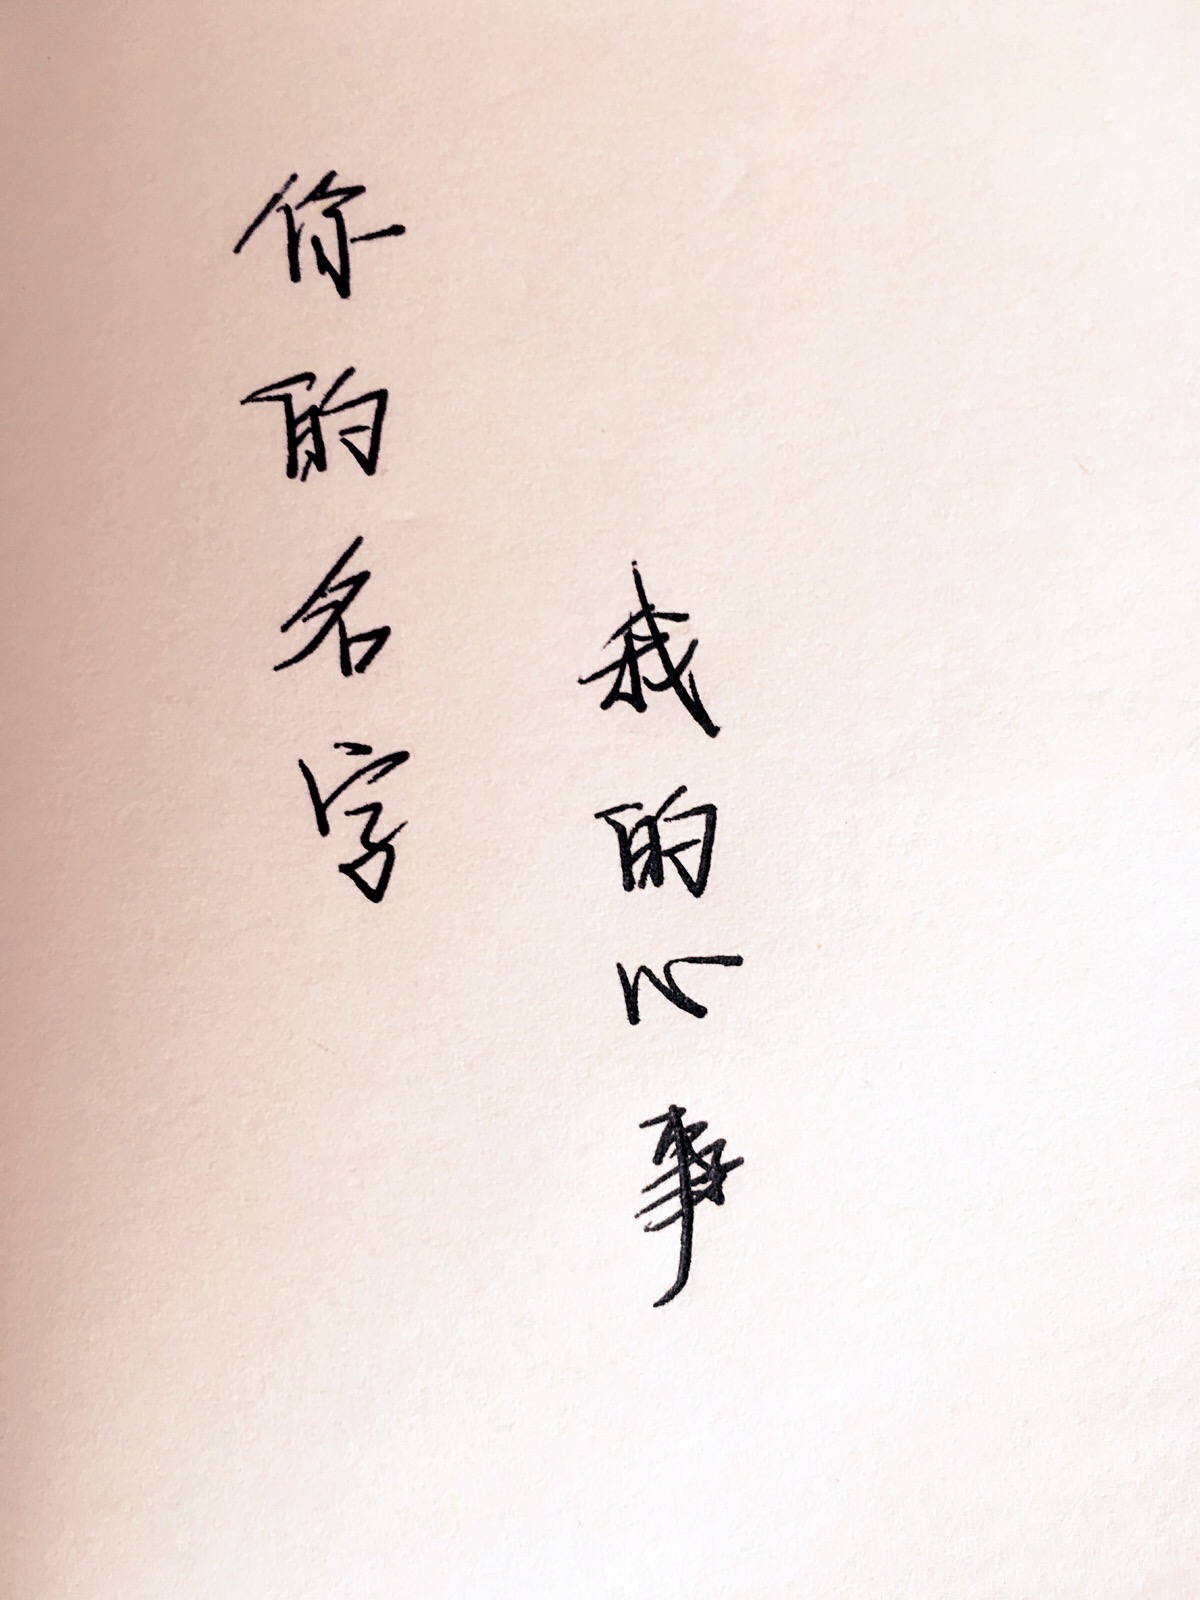 你的名字
我的心事